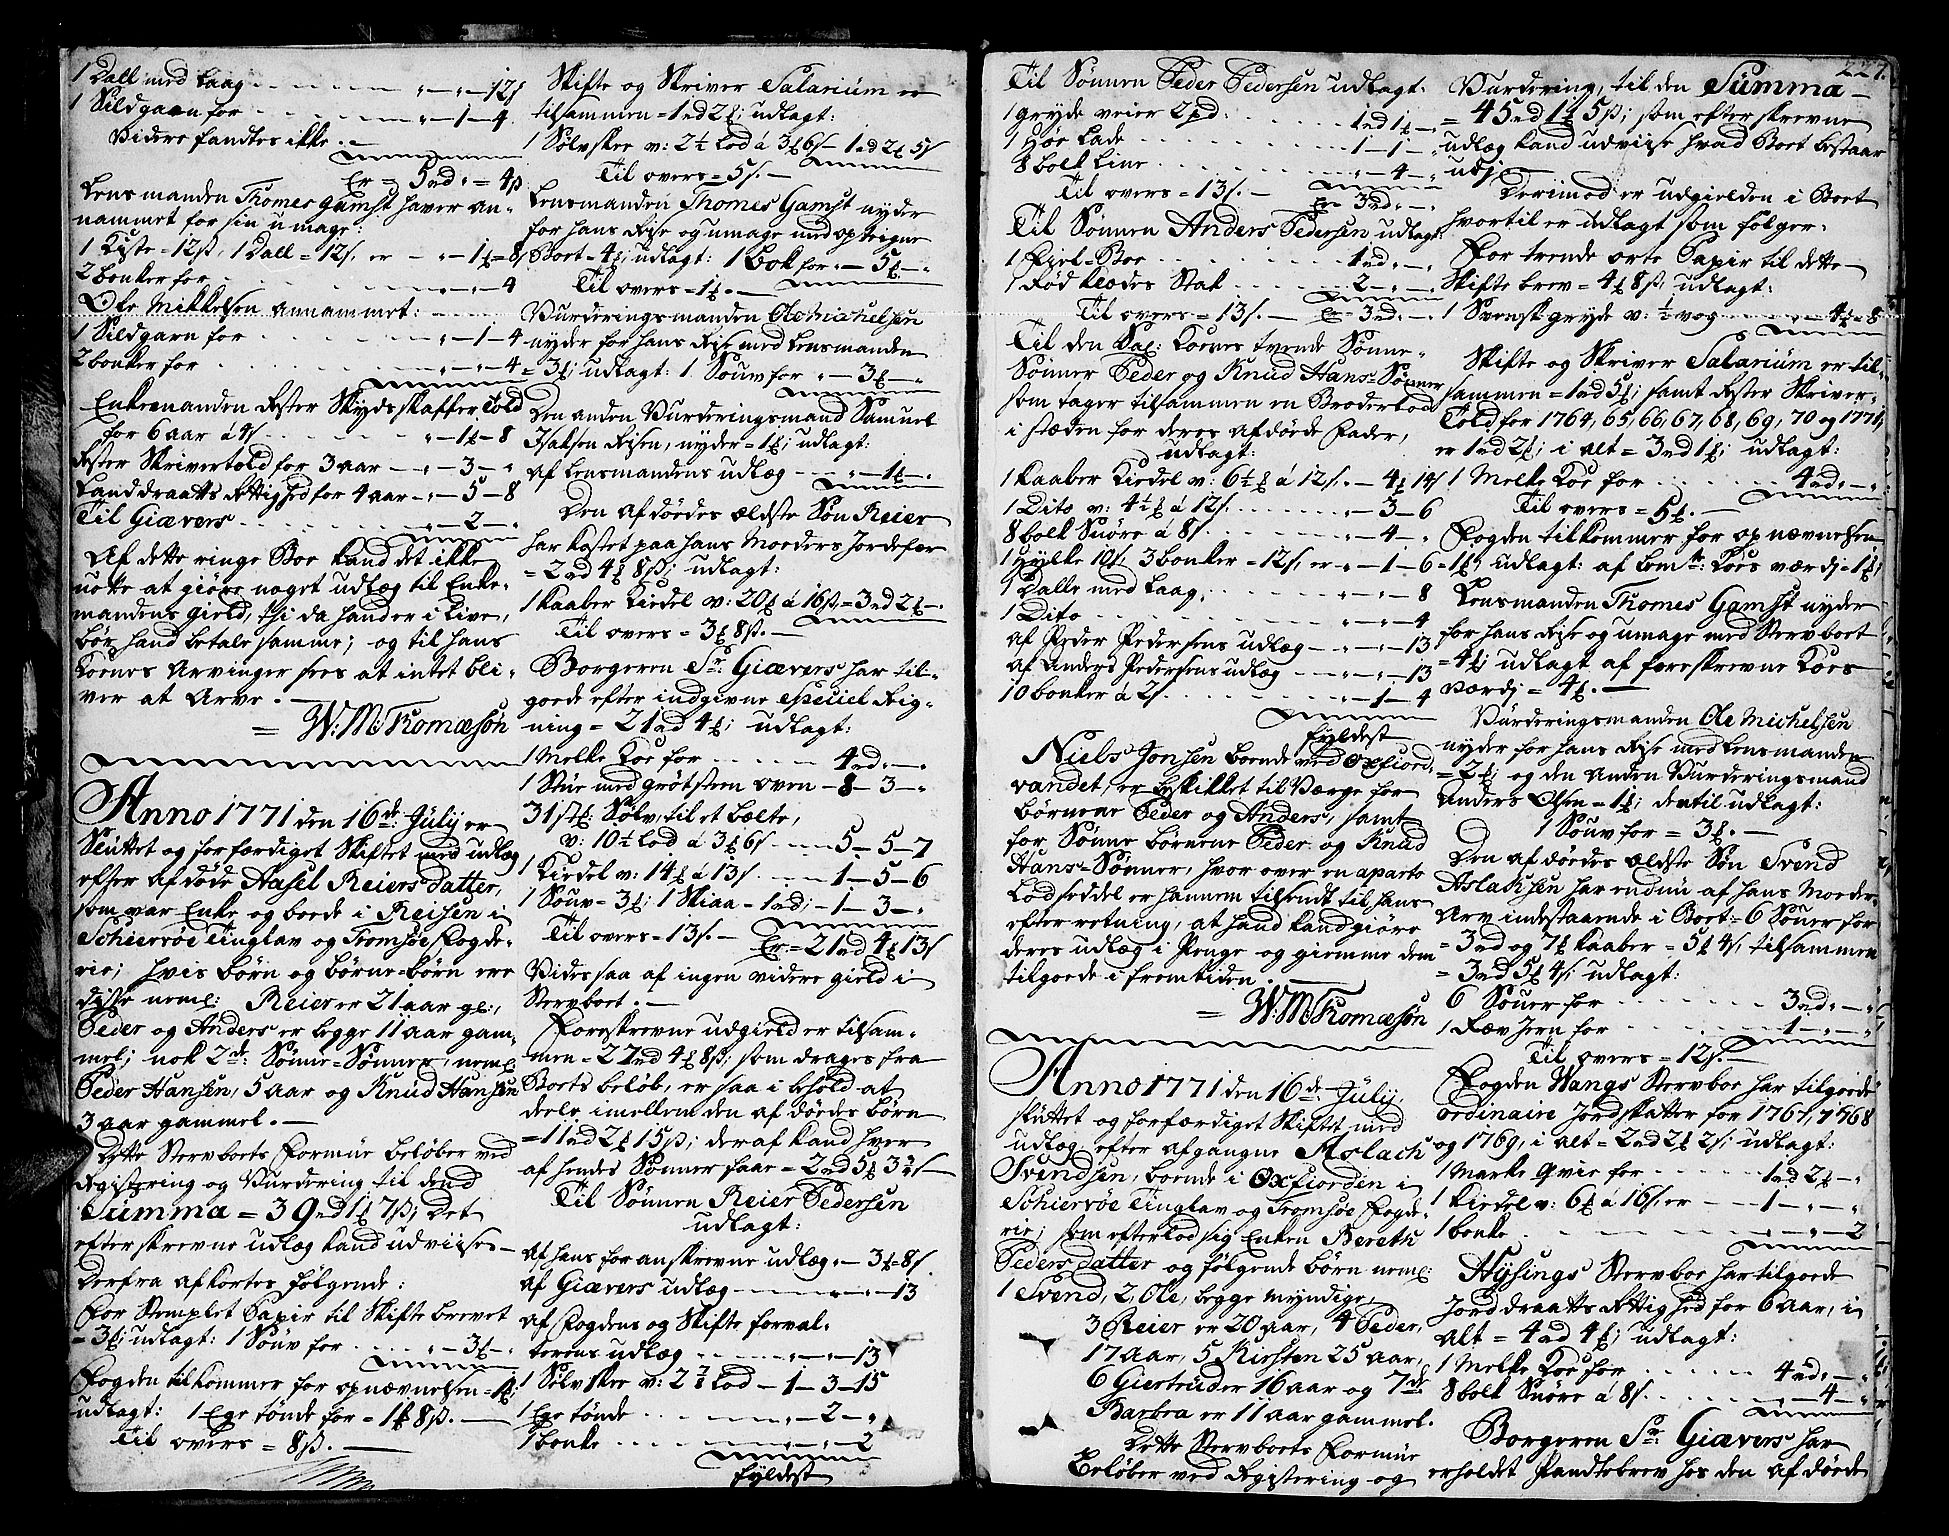 1 Dall med Laag - - - - „ - „ - 12ß
1 Sildgarn for - - - - „ - 1 - 4.
Videre fandtes ikke. -
Er = 5rd „ = 4ß
Lensmanden Thomes Gamst haver an-
nammet for sin umage:
1 Kiste = 12ß, 1 Dall = 12ß, er - „ - 1£ = 8ß
2 bonker for - - - - „ - „ - 4
Ole Mikkelsen annammet:
1 Sildgarn for - - - - „ - 1 - 4
2 bonker for - - - - „ - „ - 4
Enkemanden Rester Skydsskaffer Told
for 6 aar á 4ß - - - - „ - 1£ - 8
Rester Skrivertold for 3 aar - „ - 3 - „
Landdraatts Rettighed for 4 aar - „ - 5 - 8
Til Giævers - - - - „ - 2 - „
Af dette ringe Boe kand det ikke
nøtte at giøre noget udlæg til Enke-
mandens gield, thi da hand er i Live,
bør hand betale samme; og til hans
Koenes Arvinger sees at intet bli-
ver at Arve. -
= W: M: Thomæsøn
Anno 1771 den 16de July er
Sluttet og forfærdiget Skiftet med udlæg
efter afdøde Aasel Reiers datter,
som var Enke og boede i Reisen i
Schiervøe Tinglav og Tromsøe Fogde-
rie; hvis børn og børne-børn ere
disse neml: Reier er 21 aar gl:,
Peder og Anders er begge 11 aar gam-
mel; nok 2de Sønne-Sønner, neml:
Peder Hansen, 5 aar og Knud Hansen
3 aar gammel. -
Dette Sterboets Formue beløber ved
Registering og Vurdering til dend
Summa = 39rd 1£ 7ß; Det
efterskrevne udlæg kand udviises -
Derfra afkortes følgende:
For Stemplet Papir til Skifte brevet
= 3£; udlagt: 1 Souv for - - - „ - 3£ - „
Fogden tilkommer for opnævnelsen = 1£;
udlagt: 1 Ege tønde for = 1£ 8ß. -
Til overs = 8ß. -
Skifte og Skriver Salarium er
tilsammen = 1rd 2£; udlagt:
1 Sølvskee v: 2½ Lod á 3£ 6ß - 1rd 2£ 5ß
Til overs = 5ß. -
Lensmanden Thomes Gamst nyder
for hans Reise og umage med opteigne
Boet = 4£; udlagt: 1 Bok for „ - 5£ - „
Til overs = 1£. -
Vurderingsmanden Ole Michelsen
nyder for hans Reise med Lensmanden
= 3£; udlagt: 1 Souv for „ - 3£ - „
Den anden Vurderingsmand Samuel
Isaksen Reisen, nyder = 1£; udlagt:
af Lensmandens udlæg - - - „ - 1£ - „
Den afdødes ældste Søn Reier
har kostet paa hans Moeders Jordefær
= 2rd 4£ 8ß; udlagt:
1 kaaber Kiedel v: 20£ á 16ß = 3rd 2£ - „
Til overs = 3£ 8ß. -
Borgeren Sr: Giævers har til-
goede efter indgivne speciel Reig-
ning = 21rd 4£; udlagt:
1 Melke Koe for - - - - 4rd „ - „
1 Stue med grøtsteen oven - 8 - 3 - „
31 st: Sølv, til et bælte,
v: 10½ Lod á 3£ 6ß - - - 5 - 5 - 7
1 Kiedel v: 14£ á 13ß - - - 1 - 5 - 6
1 Souv = 3£; 1 Skiaa = 1rd; - 1 - 3 - „
Til overs = 13ß. - Er = 21rd 4£ 13ß
Vides saa af ingen videre gield i
Sterboet. -
Foreskrevne udgield er tilsam-
men = 27rd 4£ 8ß; som drages fra
Boets beløb, er saa i behold at
deele imellem den afdødes børn
= 11rd 2£ 15ß; deraf kand hver
af hendes Sønner faar = 2rd 5£ 3¾ß
Til Sønnen Reier Pedersen
udlagt:
af hans foranskrevne udlæg - 3£ = 8ß
af Giævers udlæg - - - - „ - „ - 13
af Fogdens og Skifte forval-
terens udlæg - - - - „ - „ - 13
1 Sølvskee v: 2⅞ Lod - 1 - 3 - 15
1 Ege tønde - - - - „ - 2 - „
1 bonke - - - - „ - „ - 2
fyldest
227.
Til Sønnen Peder Pedersen udlagt:
1 gryde veier 2 pd: - - - 1rd 1£ - „
1 Høe Lade - - - - 1 - 1 - „
8 bolt Line - - - - „ - 4 - „
Til overs = 13ß. - Er 3rd „ - „
Til Sønnen Anders Pedersen udlagt:
1 Fiæl-Boe - - - - 1rd „ - „
1 Rød klædes Stak - - - 2 - „ - „
Til overs = 13ß. - Er = 3rd „ - „
Til den Sal: Koenes tvende Sønne-
Sønner Peder og Knud Hans-Sønner
som tager tilsammen en Broderlod
i stæden for deres afdøde Fader,
udlagt:
1 kaaber Kiedel v: 6½£ á 12ß. - 4£ 14ß
1 Dito v: 4½£ á 12ß - - - „ - 3 - 6
8 bolt Snøre á 8ß - - - „ - 4 - „
1 hylke 10ß, 3 bonker = 12ß, er „ - 1 - 6
1 Dalle med Laag - - - „ - „ - 8
1 Dito - - - - „ - „ - 4
af Peder Pedersens udlæg - „ - „ - 13
af Anders Pedersens udlæg - „ - „ - 13
10 bonker á 2ß - - - - „ - 1 - 4
fyldest
Niels Jonsen boende ved Oxfiord
vandet, er beskikket til Værge for
børnene Peder og Anders, samt
for Sønne børnene Peder og Knud
Hans-Sønner, hvor over en aparte
Lodseddel er hannem tilsendt til hans
efterretning, at hand kand giøre
deres udlæg i Penge og giemme dem
tilgoede i fremtiden. -
= W: M: Thomæsøn
Anno 1771 den 16de July,
sluttet og forfærdiget Skiftet med
udlæg efter afgangne Aslach
Svendsen, boende i Oxfiorden i
Schiervøe Tinglav og Tromsøe Fogde-
rie; som efterlod sig Enken Bereth
Peders datter og følgende børn neml:
1 Svend, 2, Ole, begge myndige,
3 Reier er 20 aar, 4 Peder,
17 aar, 5 Kirsten 25 aar,
6 Giertrud er 16 aar og 7de
Barbra er 11 aar gammel.
Dette Sterboets Formue
Beløber ved Registering og
Vurdering, til den Summa -
= 45rd 1£ 5ß; som efterskrevne
udlæg kand udviise hvad Boet bestaar
udj. -
Derimod er udgielden i Boet
hvortil er udlagt som følger.
For trende arke Papir til dette
Skifte brev = 4£ 8ß; udlagt:
1 Svensk gryde v: ½ vog - - - „ - 4£ = 8
Skifte og Skriver Salarium er til-
sammen = 1rd 5£; samt Rester Skriver-
Told for 1764, 65, 66, 67, 68, 69, 70 og 1771,
er 1rd 2£; i alt = 3rd 1£; udlagt:
1 Melke Koe for - - - 4rd „ - „
Til overs = 5£. -
Fogden tilkommer for opnævnelsen
= 1£; udlagt: af bemte: Koes værdj = 1£;
Lensmanden Thomes Gamst nyder
for hans Reise og umage med Sterboet
= 4£; udlagt af foreskrevne Koes
Værdj = 4£. -
Vurderingsmanden Ole Michelsen
nyder for hans Reise med Lensmanden
= 2£; og den anden Vurderingsmand
Anders Olsen = 1£; dertil udlagt:
1 Souv for = 3£. -
Den afdødes ældste Søn Svend
Aslaksen har endnu af hans Moeders
Arv indestaaende i Boet = 6 Souer for
= 3rd og 7£ kaaber = 5£ 4ß, tilsammen
= 3rd 5£ 4ß; udlagt:
6 Souer for - - - - 3rd „ - „
1 Ræv Jern for - - - 1 - „ - „
Til overs = 12ß. -
Fogden Wangs Sterboe har tilgoede
ordinaire Jordskatter for 1767, 1768
og 1769, i alt = 2rd 2£ 2ß; udlagt:
1 Marke qvie for - - - 1rd 2£ - „
1 Kiedel v: 6£ á 16ß. er - - 1 - „ - „
1 bonke - - - - „ - „ - 2
Hysings Sterboe har tilgoede
Jorddraatts Rettighed for 6 aar, i
alt = 4rd 4£; udlagt:
1 Melke Koe for - - - 4rd „ - „
8 bolt Snøre á 8ß - - - „ - 4 - „
Borgeren Sr: Giævers har
erholdet Pandtebrev hos den afdøde